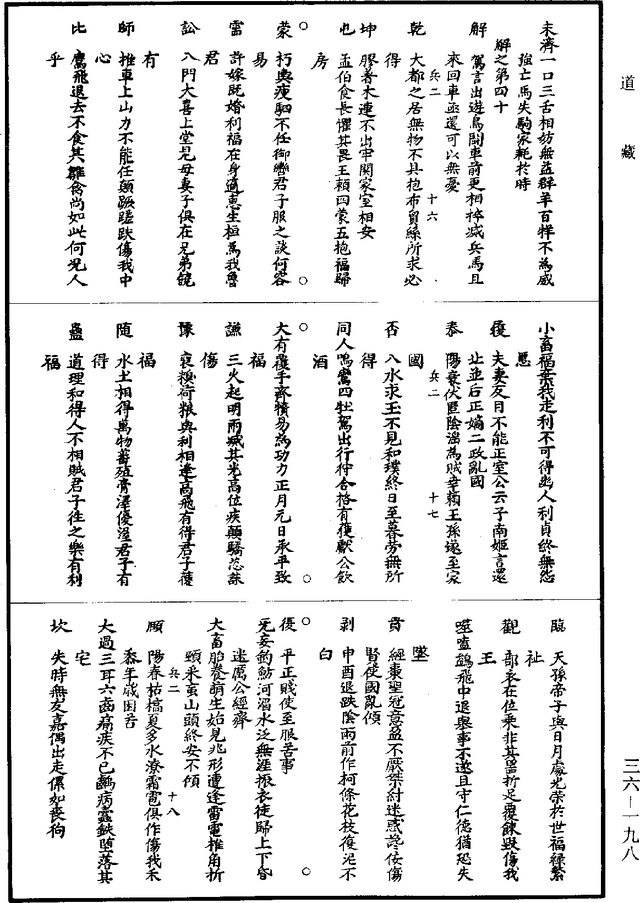 道藏
未濟一口三舌相妨無益群羊百牂不為威
強亡馬失駒家耗於時
解之第四十
解 駕言出遊鳥鬭車前更相捽滅兵馬且
來回車亟還可以無憂
兵二 十六
乾 大都之居無物不具抱布貿絲所求必
得
坤 膠著木連不出牢關家室相安
也 孟伯食長懼其畏王賴四蒙五抱福歸
房
○ ○
蒙 朽輿疲駟不任御轡君子服之談何容
易
需 許嫁既婚利福在身適惠生桓為我魯
君
訟 入門大喜上堂見母妻子俱在兄弟饒
有
師 推車上山力不能任顛蹶蹉跌傷我中
心
比 鷹飛退去不食其雛禽尚如此何況人
乎
小畜福棄我走利不可得幽人利貞終無怨
慝
復 夫妻反目不能正室公云子南姬言還
北並后正嫡二政亂國
泰 陽衰伏匿陰淫為賊幸賴王孫遂至家
國
兵二 十七
否 八水求玉不見和璞終日至暮勞無所
得
同人鳴鸞四牡駕出行狩合格有獲獻公飲
酒
○ ○
大有覆手齊犢易為功力正月元日承平致
福
謙 三火起明雨滅其光高位疾顛驕恣誅
傷
豫 裒糗荷糧與利相逢高飛有得君子獲
福
隨 水土相得萬物蕃殖膏澤優渥君子有
得
蠱 道理和得人不相賊君子往之樂有利
福
臨 天孫帝子與日月處光榮於世福祿繁
祉
觀 鄙衣在位乘非其器折足覆餗毀傷我
玉
噬嗑鶴飛中退舉事不遂且守仁德猶恐失
墜
賁 經棗整冠意盈不厭桀紂迷惑讒佞傷
賢使國亂傾
剝 申酉退跌陰雨前作柯條花枝復泥不
白
○ ○
復 平正賤使至服苦事
无妄釣魴河湄水泛無涯振衣徒歸上下昏
迷屬公經齊
大畜胎養萌生始見兆形遭逢雷電椎角折
頤采蚩山頭終安不傾
兵二 十八
頤 陽春枯槁夏多水潦霜雹俱作傷我禾
黍年歲困苦
大過三耳六齒痛疾不已齲病蠹缺墮落其
宅
坎 失時無友嘉偶出走儽如喪狗
三六—一九八